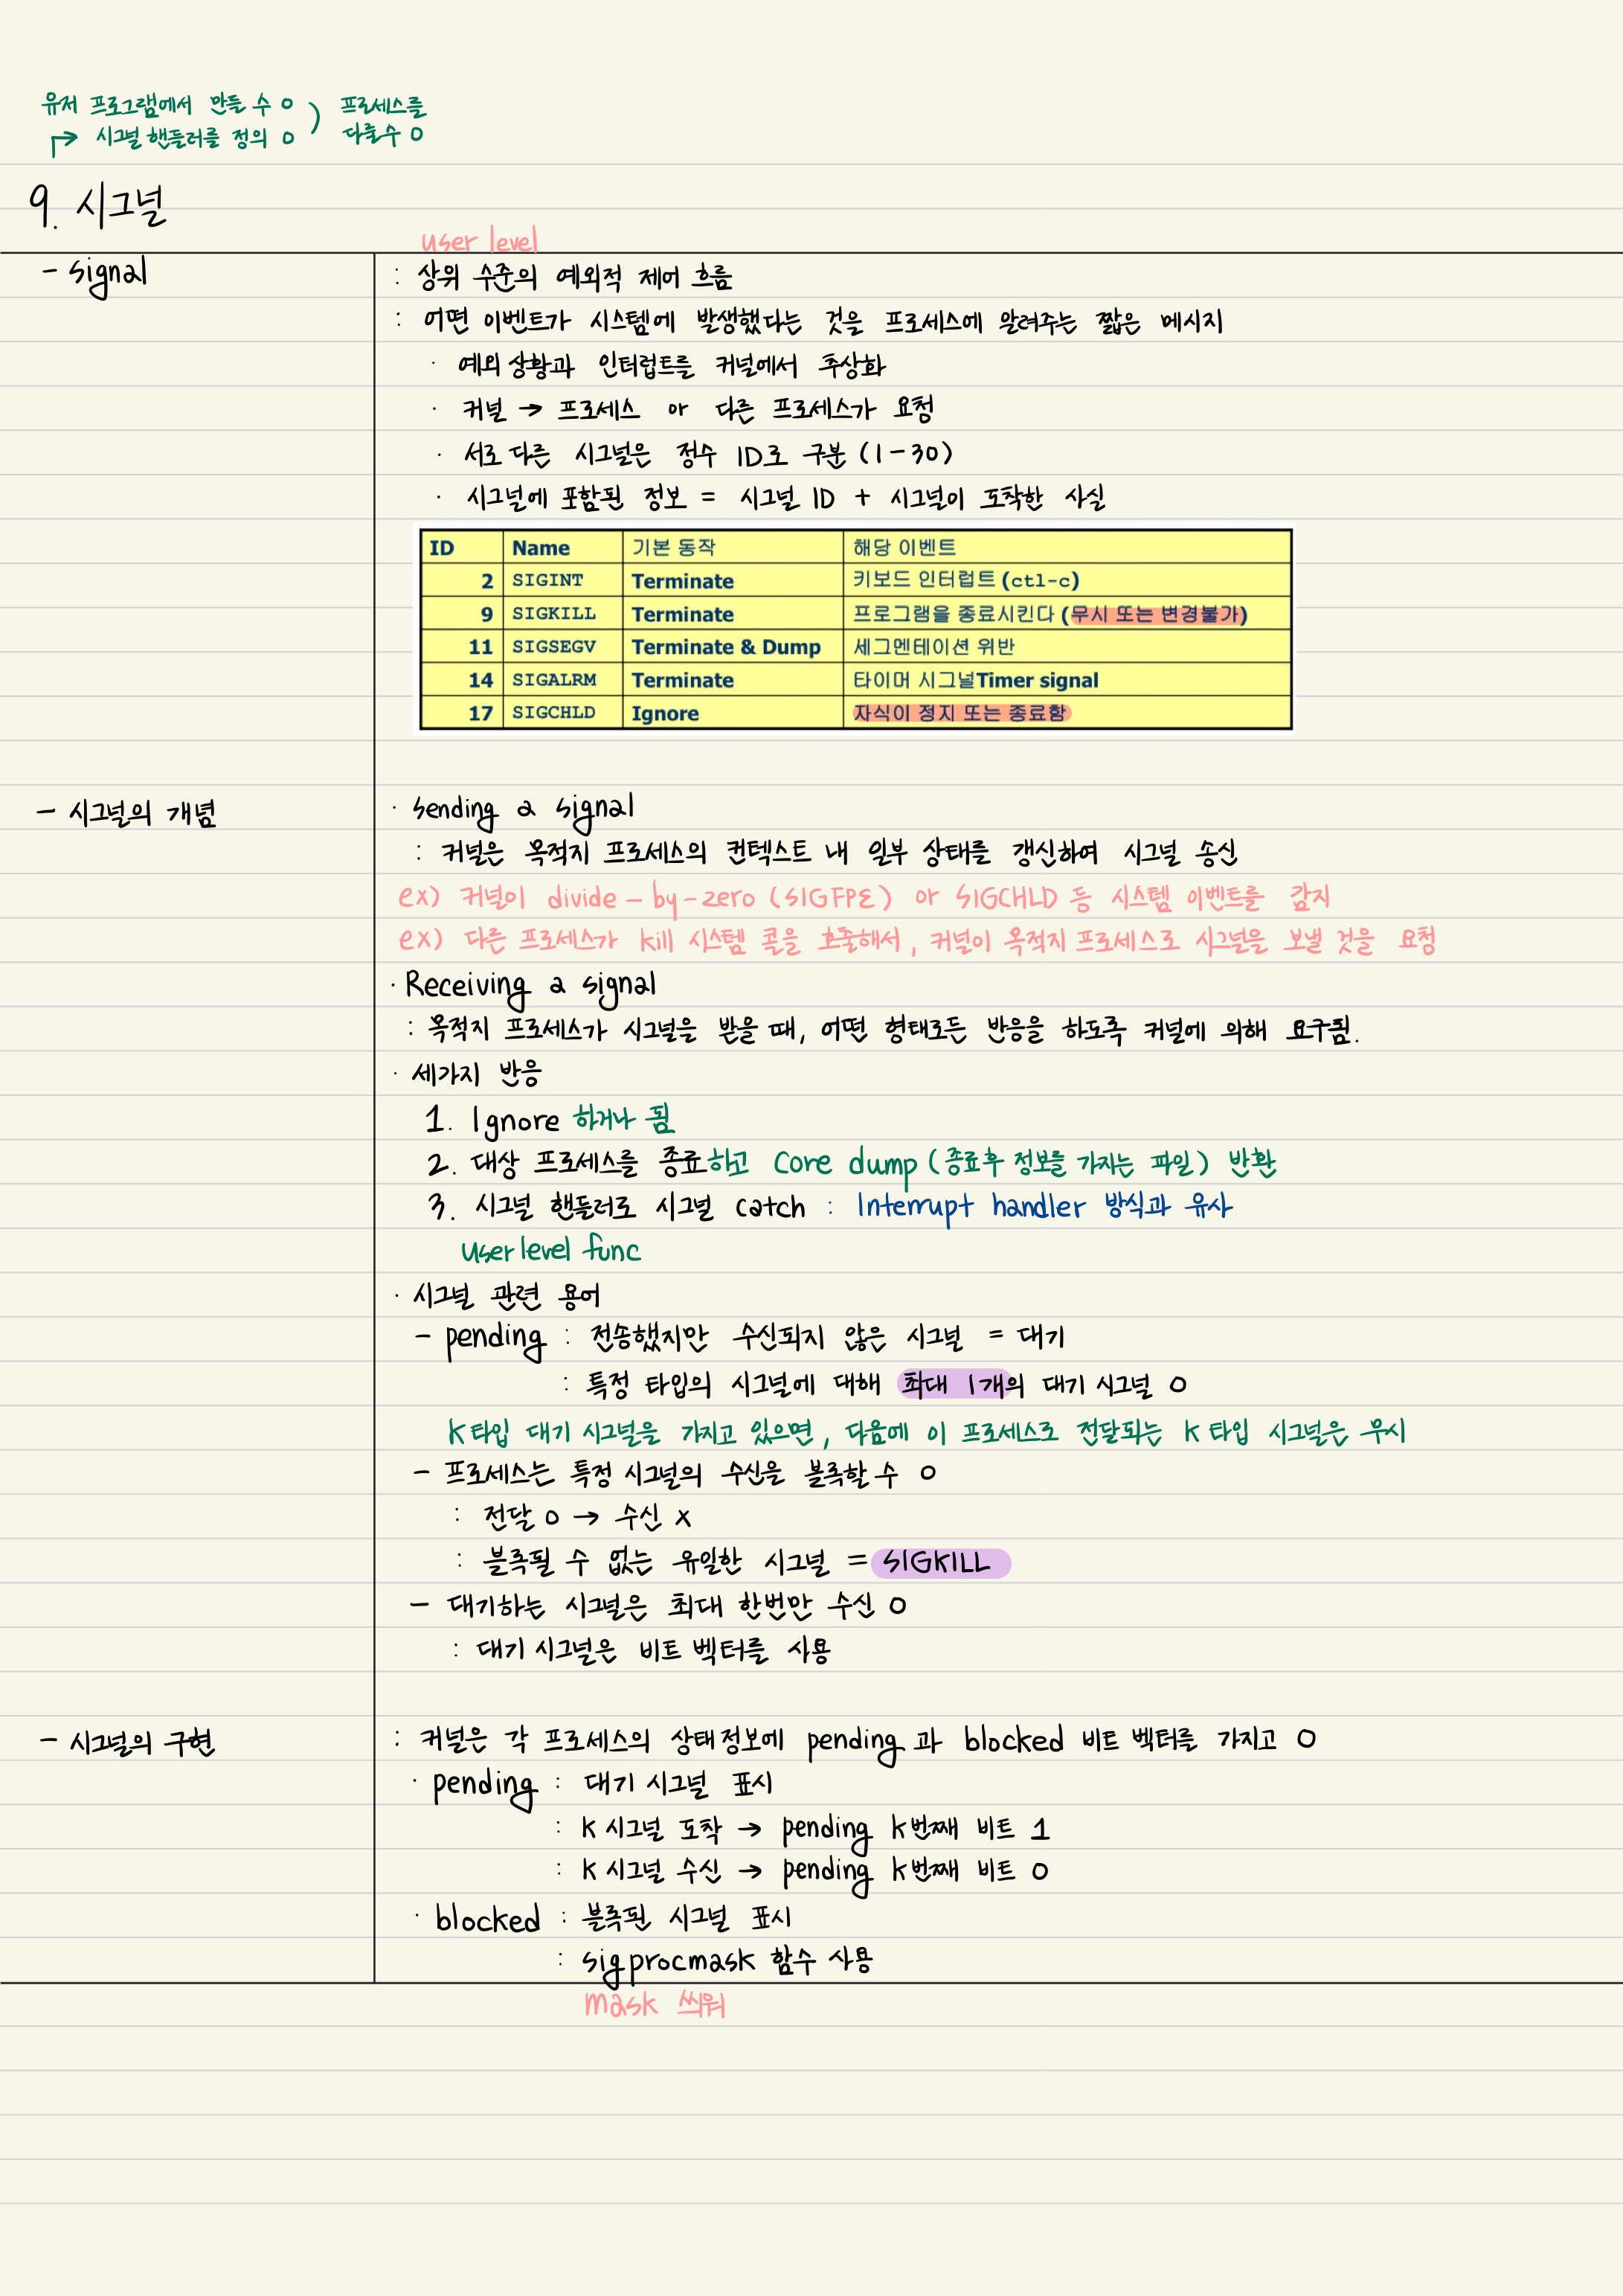 유저 프로그램에서 만들 수 O ) 프로세스를
↱ 시그널 핸들러를 정의 O 다룰수 O
9. 시그널
user level
- signal
: 상위 수준의 예외적 제어 흐름
: 어떤 이벤트가 시스템에 발생했다는 것을 프로세스에 알려주는 짧은 메시지
· 예외상황과 인터럽트를 커널에서 추상화
· 커널 → 프로세스 or 다른 프로세스가 요청
· 서로 다른 시그널은 정수 ID로 구분 (1-30)
· 시그널에 포함된 정보 = 시그널 ID + 시그널이 도착한 사실
ID Name 기본 동작 해당 이벤트
2 SIGINT Terminate 키보드 인터럽트 (ctl-c)
9 SIGKILL Terminate 프로그램을 종료시킨다 (무시 또는 변경불가)
11 SIGSEGV Terminate & Dump 세그멘테이션 위반
14 SIGALRM Terminate 타이머 시그널Timer signal
17 SIGCHLD Ignore 자식이 정지 또는 종료함
- 시그널의 개념
· sending a signal
: 커널은 목적지 프로세스의 컨텍스트 내 일부 상태를 갱신하여 시그널 송신
ex) 커널이 divide-by-zero (SIGFPE) or SIGCHLD 등 시스템 이벤트를 감지
ex) 다른 프로세스가 kill 시스템 콜을 호출해서, 커널이 목적지 프로세스로 시그널을 보낼 것을 요청
· Receiving a signal
: 목적지 프로세스가 시그널을 받을 때, 어떤 형태로든 반응을 하도록 커널에 의해 요구됨.
· 세가지 반응
1. Ignore 하거나 됨
2. 대상 프로세스를 종료하고 Core dump (종료후 정보를 가지는 파일) 반환
3. 시그널 핸들러로 시그널 catch : Interrupt handler 방식과 유사
user level func
· 시그널 관련 용어
- pending : 전송했지만 수신되지 않은 시그널 = 대기
: 특정 타입의 시그널에 대해 최대 1개의 대기 시그널 O
K타입 대기 시그널을 가지고 있으면, 다음에 이 프로세스로 전달되는 K타입 시그널은 무시
- 프로세스는 특정 시그널의 수신을 블록할 수 O
: 전달 O → 수신 X
: 블록될 수 없는 유일한 시그널 = SIGKILL
- 대기하는 시그널은 최대 한번만 수신 O
: 대기 시그널은 비트 벡터를 사용
- 시그널의 구현
: 커널은 각 프로세스의 상태정보에 pending과 blocked 비트 벡터를 가지고 O
· pending : 대기 시그널 표시
: K 시그널 도착 → pending k번째 비트 1
: K 시그널 수신 → pending k번째 비트 0
· blocked : 블록된 시그널 표시
: sigprocmask 함수 사용
mask 씌워